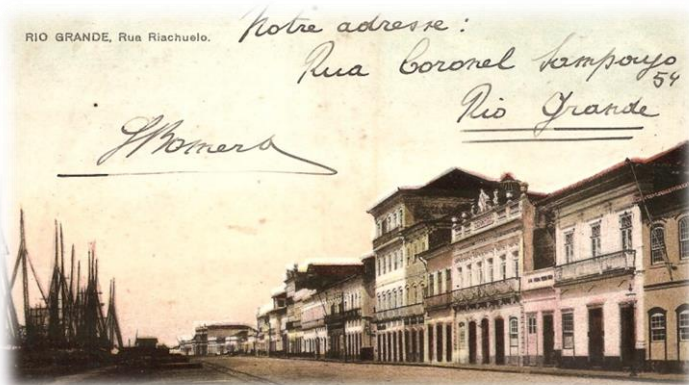 RIO GRANDE, Rua Riachuelo.
Notre adresse:
Rua Coronel Sampayo
54
Rio Grande